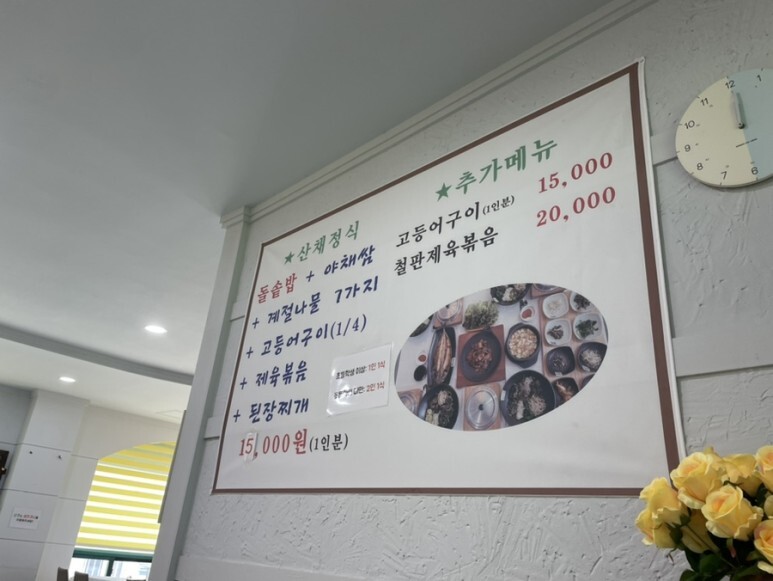 ★산채정식
돌솥밥 + 야채쌈
+ 계절나물 7가지
+ 고등어구이(1/4)
+ 제육볶음
+ 된장찌개
15,000원(1인분)
1인 1식
2인 1식
★추가메뉴
고등어구이(1인분) 15,000
철판제육볶음 20,000
12
1
11
10
9
8
7
6